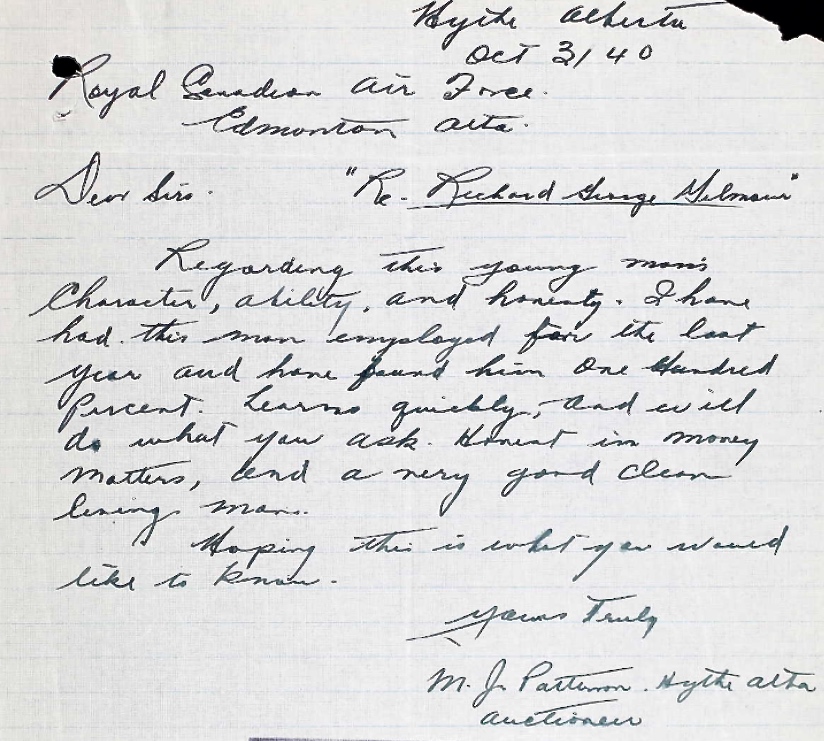 Hythe Alberta
Oct 3/40
Royal Canadian Air Force.
Edmonton Alta.
Dear Sirs. "Re. Richard George Gilmour"
Regarding this young man's
Character, ability, and honesty. I have
had this man employed for the last
year and have found him One Hundred
Percent. Learns quickly, and will
do what you ask. Honest in money
matters, and a very good clean
living man.
Hoping this is what you would
like to know.
Yours Truly
M. J. Patterson. Hythe Alta
Auctioneer